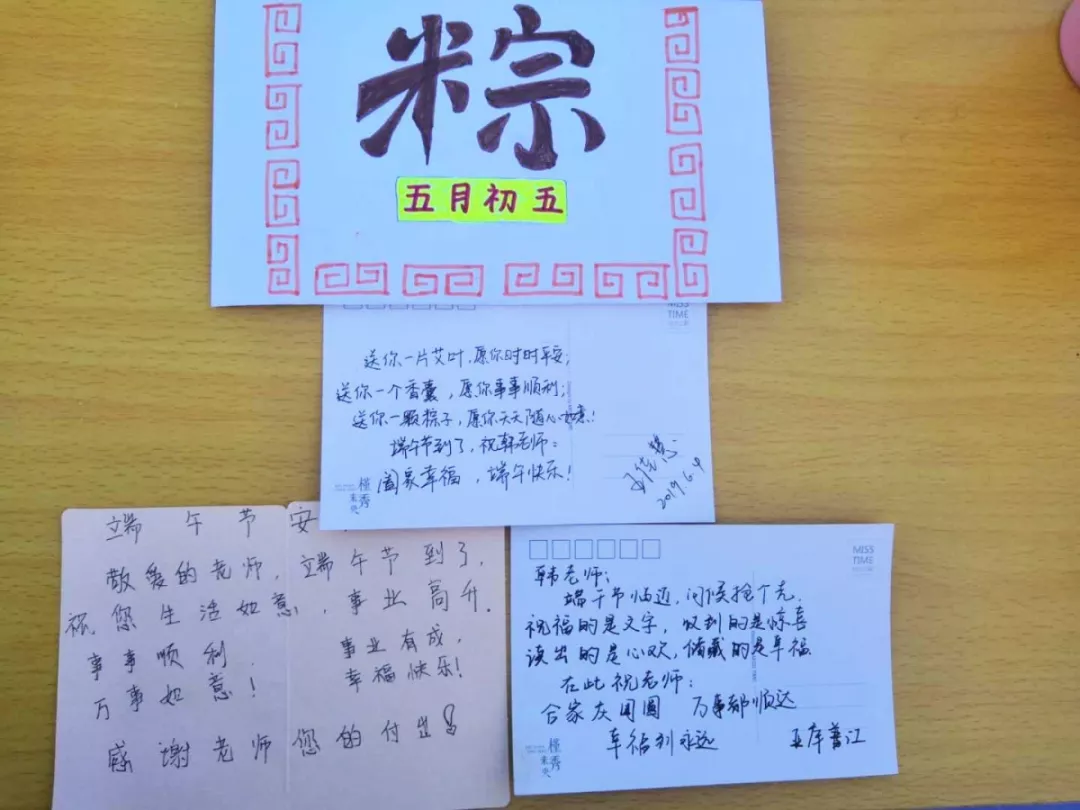 粽
五月初五
MISS
TIME
送你一片艾叶，愿你时时平安；
送你一个香囊，愿你事事顺利；
送你一颗粽子，愿你天天随心如意！
端午节到了，祝韩老师：
阖家幸福，端午快乐！
2019.6.4
槿秀
未央
端午节安
敬爱的老师，端午节到了，
祝您生活如意，事业高升。
事事顺利 事业有成，
万事如意！ 幸福快乐！
感谢老师您的付出！
MISS
TIME
韩老师：
端午节临近，问候抢个先，
祝福的是文字，收到的是惊喜
读出的是心欢，储藏的是幸福
在此祝老师：
合家庆团圆 万事都顺达
幸福到永远
槿秀
未央